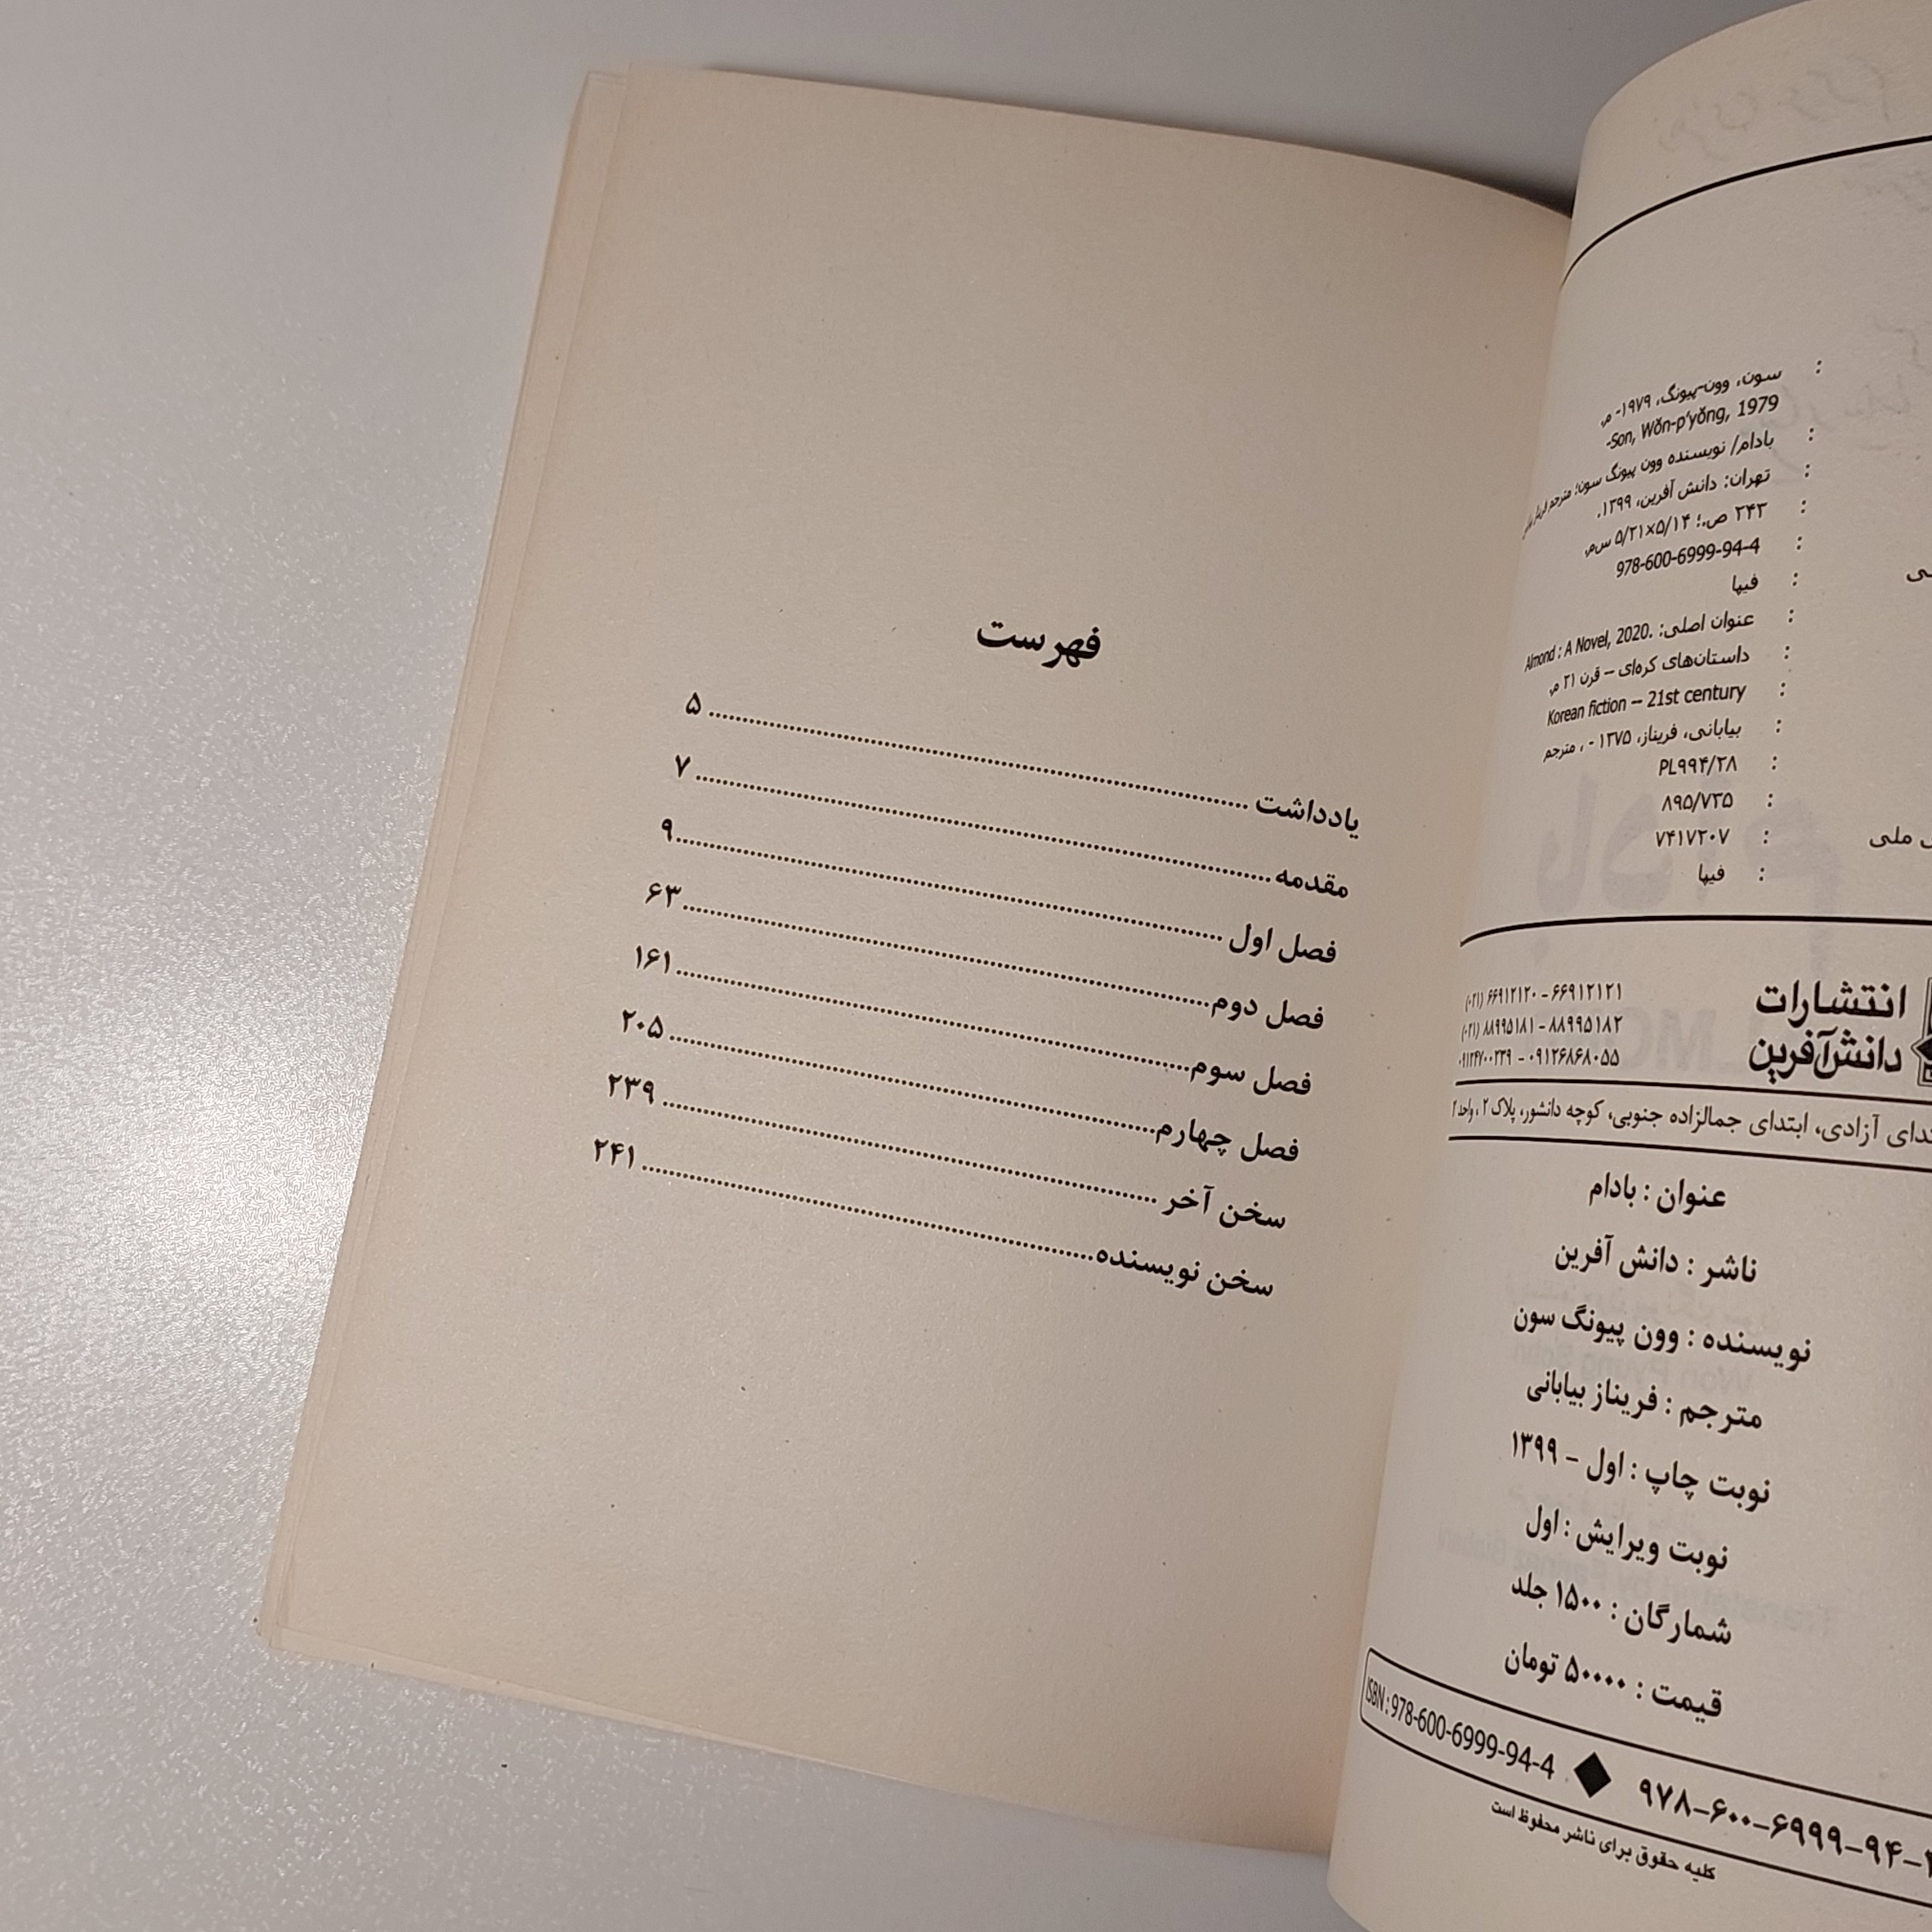 سون، وون-پیونگ، ۱۹۷۹- م.
Son, Wŏn-p'yŏng, 1979-
بادام/ نویسنده وون پیونگ سون؛ مترجم فریناز
تهران: دانش آفرین، ۱۳۹۹.
۲۴۳ ص.؛ ۵/۱۴×۵/۲۱ س‌م.
978-600-6999-94-4
فیپا
عنوان اصلی: Almond : A Novel, 2020.
داستان‌های کره‌ای – قرن ۲۱ م.
Korean fiction -- 21st century
بیابانی، فریناز، ۱۳۷۵ - ، مترجم
PL۹۹۴/۲۸
۸۹۵/۷۳۵
ملی : ۷۴۱۷۲۰۷
فیپا
انتشارات
دانش‌آفرین
(۰۲۱) ۶۶۹۱۲۱۲۰ – ۶۶۹۱۲۱۲۱
(۰۲۱) ۸۸۹۹۵۱۸۱ – ۸۸۹۹۵۱۸۲
۰۹۱۲۴۷۰۰۲۳۹ – ۰۹۱۲۶۸۶۸۰۵۵
آزادی، ابتدای جمالزاده جنوبی، کوچه دانشور، پلاک ۲ ، واحد ۲
عنوان : بادام
ناشر : دانش آفرین
نویسنده : وون پیونگ سون
مترجم : فریناز بیابانی
نوبت چاپ : اول – ۱۳۹۹
نوبت ویرایش : اول
شمارگان : ۱۵۰۰ جلد
قیمت : ۵۰۰۰۰ تومان
ISBN : 978-600-6999-94-4 ◆ ۹۷۸-۶۰۰-۶۹۹۹-۹۴-
کلیه حقوق برای ناشر محفوظ است
فهرست
یادداشت ........ ۵
مقدمه ........ ۷
فصل اول ........ ۹
فصل دوم ........ ۶۳
فصل سوم ........ ۱۶۱
فصل چهارم ........ ۲۰۵
سخن آخر ........ ۲۳۹
سخن نویسنده ........ ۲۴۱